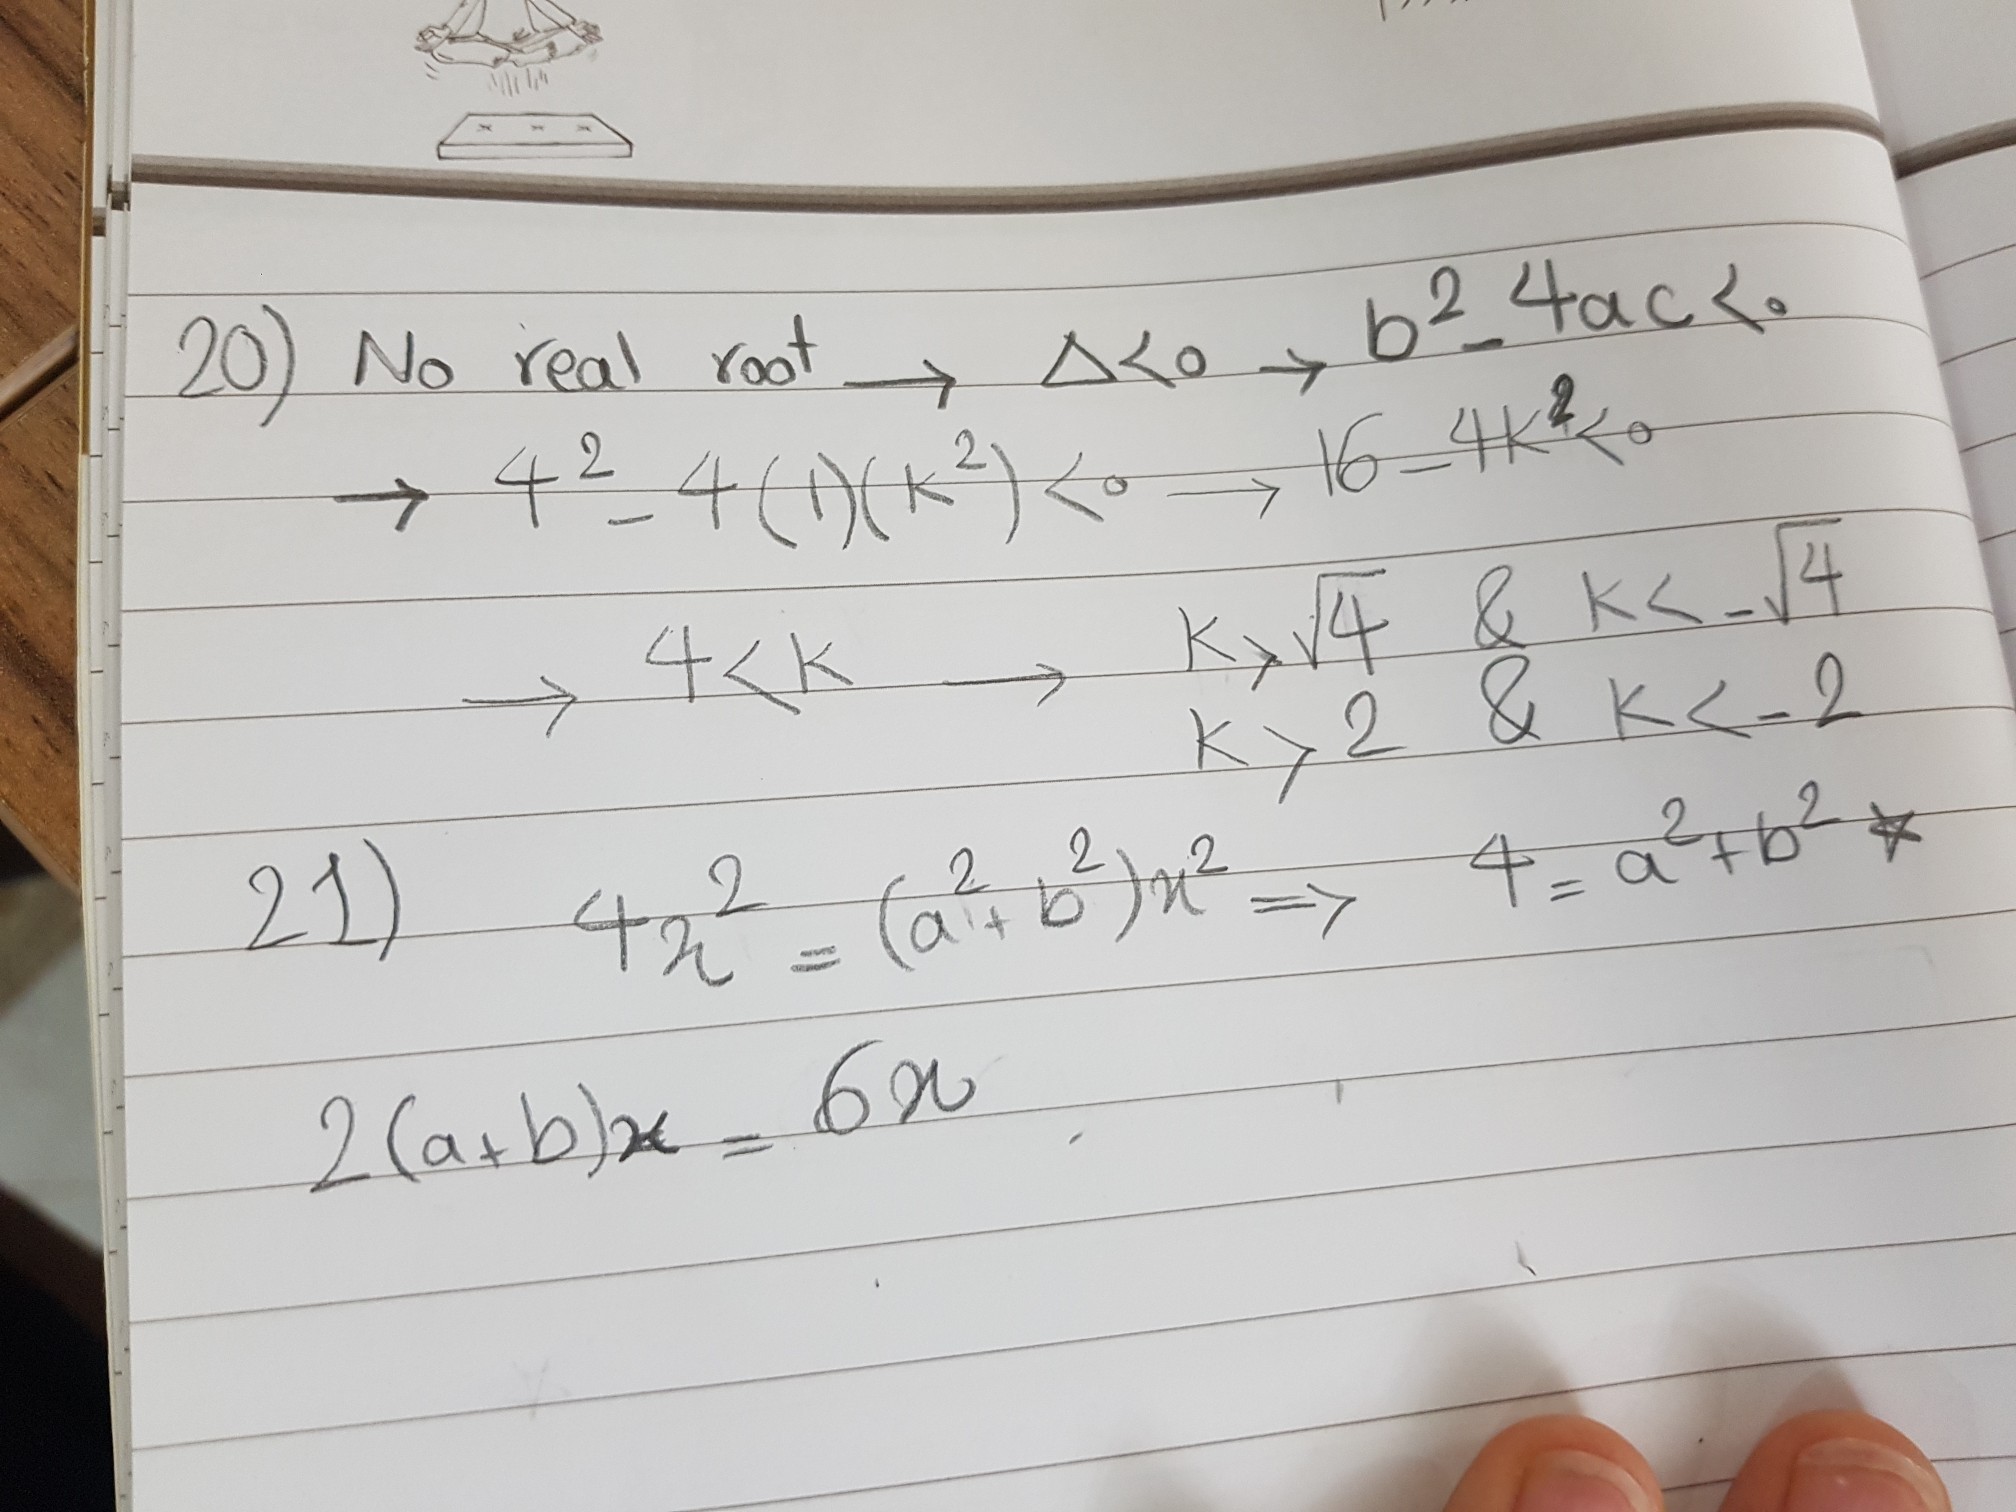 20) No real root → Δ<0 → b² - 4ac<0
→ 4² - 4(1)(k²)<0 → 16 - 4k²<0
→ 4<k → k>√4 & k<-√4
k>2 & k<-2
21) 4x² = (a²+b²)x² ⇒ 4 = a²+b² *
2(a+b)x = 6x